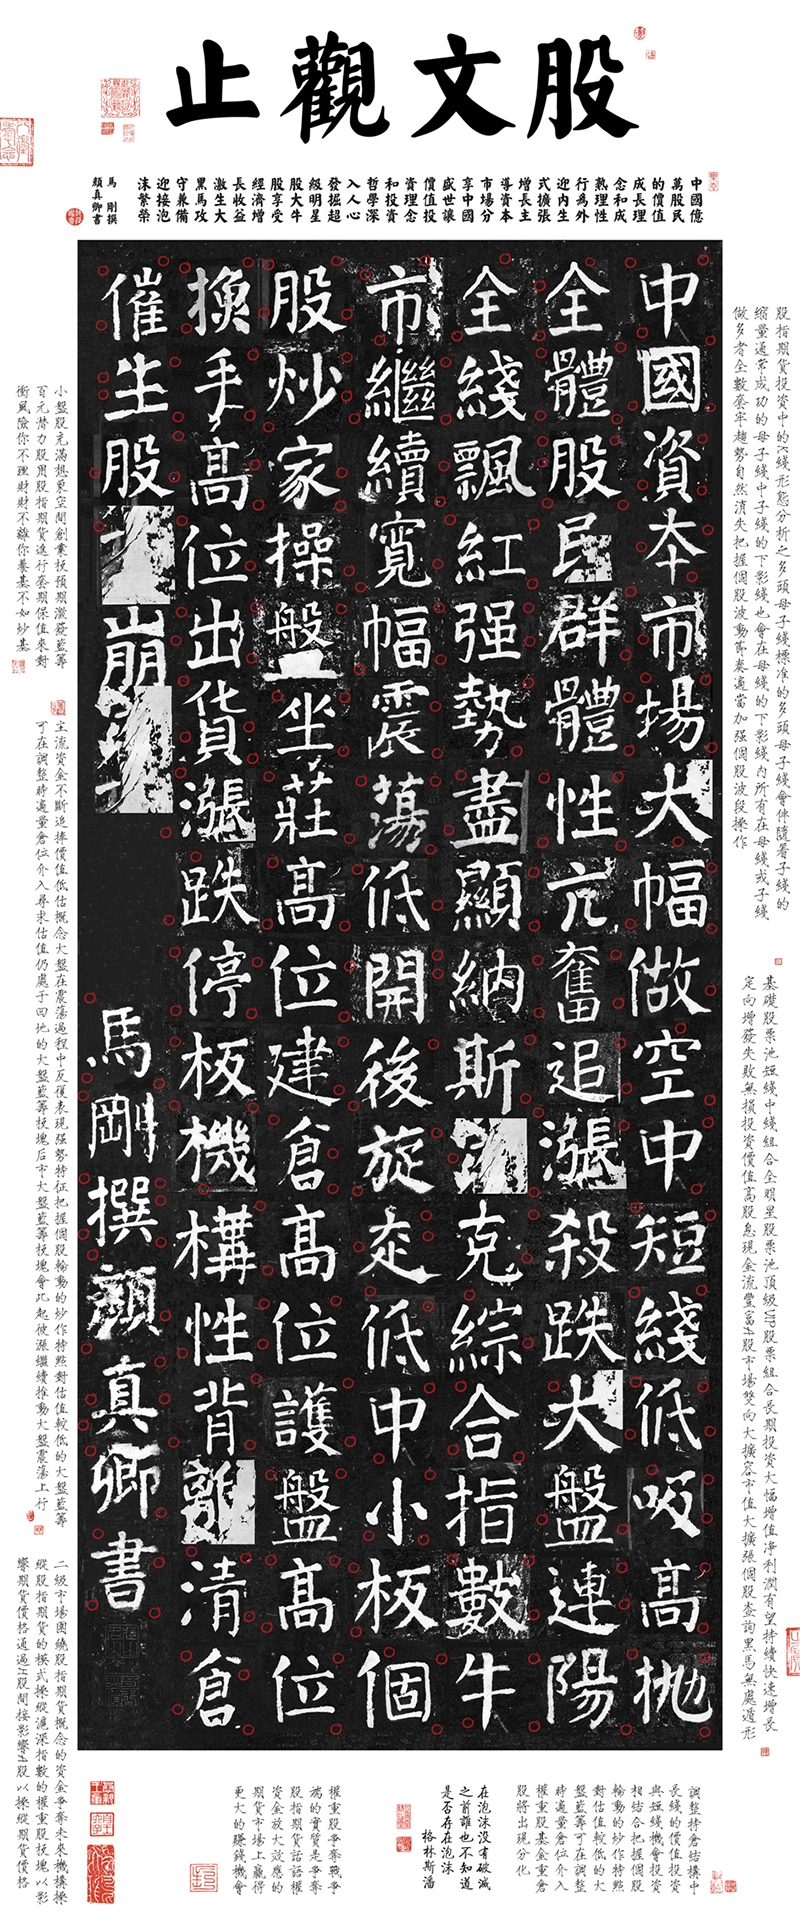 股文觀止
中國億
萬股民
的價值
成長理
念和成
熟理性
行為外
迎內生
式擴張
增長主
導資本
市場分
享中國
盛世讓
價值投
資理念
和投資
哲學深
入人心
發掘超
級明星
股大牛
股享受
經濟增
長收益
激生大
黑馬攻
守兼備
迎接泡
沫繁榮
馬剛撰
顏真卿書
中國資本市場大幅做空中短綫低吸高拋
全體股民群體性亢奮追漲殺跌大盤連陽
全綫飄紅强勢盡顯納斯克綜合指數牛
市繼續寬幅震蕩低開後旋走低中小板個
股炒家操盤坐莊高位建倉高位護盤高位
換手高位出貨漲跌停板機構性背離清倉
催生股崩
馬剛撰顏真卿書
股指期貨投資中的K綫形態分析之多頭母子綫標准的多頭母子綫會伴隨着子綫的
縮量通常成功的母子綫中子綫的下影綫也會在母綫的下影綫內所有在母綫或子綫
做多者全數套牢趨勢自然消失把握個股波動節奏適當加强個股波段操作
基礎股票池短綫中綫組合全明星股票池頂級VIP股票組合長期投資大幅增值净利潤有望持續快速增長
定向增發失敗無損投資價值高股息現金流豐富A股市場雙向大擴容市值大擴張個股查詢黑馬無處遁形
小盤股充滿想象空間創業板預期激發藍籌
百元潜力股用股指期貨進行套期保值來對
衝風險你不理財財不離你養基不如炒基
主流資金不斷追捧價值低估概念大盤在震蕩過程中反復表現强勢特征把握個股輪動的炒作特點對估值較低的大盤藍籌
可在調整時適量倉位介入尋求估值仍處于凹地的大盤藍籌板塊后市大盤藍籌板塊會此起彼漲繼續推動大盤震蕩上行
二級市場圍繞股指期貨概念的資金爭奪未來機構操
縱股指期貨的模式操縱滬深指數的權重股板塊以影
響期貨價格通過H股間接影響A股以操縱期貨價格
調整持倉結構中
長綫的價值投資
與短綫機會投資
相結合把握個股
輪動的炒作特點
對估值較低的大
盤藍籌可在調整
時適量倉位介入
權重股基金重倉
股將出現分化
在泡沫没有破滅
之前誰也不知道
是否存在泡沫
格林斯潘
權重股爭奪戰爭
端的實質是爭奪
股指期貨話語權
資金放大效應的
期貨市場上贏得
更大的賺錢機會